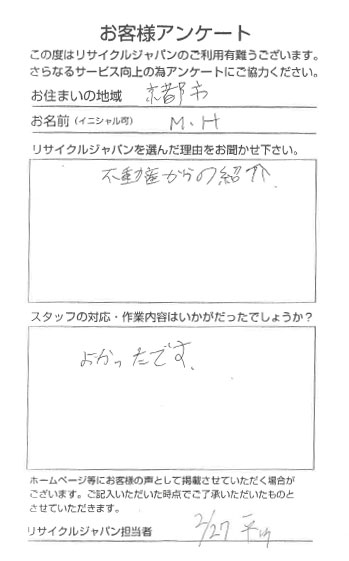 お客様アンケート
この度はリサイクルジャパンのご利用有難うございます。
さらなるサービス向上の為アンケートにご協力ください。
お住まいの地域 京都市
お名前(イニシャル可) M.H
リサイクルジャパンを選んだ理由をお聞かせ下さい。
不動産からの紹介
スタッフの対応・作業内容はいかがだったでしょうか?
よかったです。
ホームページ等にお客様の声として掲載させていただく場合が
ございます。ご記入いただいた時点でご了承いただいたものと
させていただきます。
リサイクルジャパン担当者 2/27